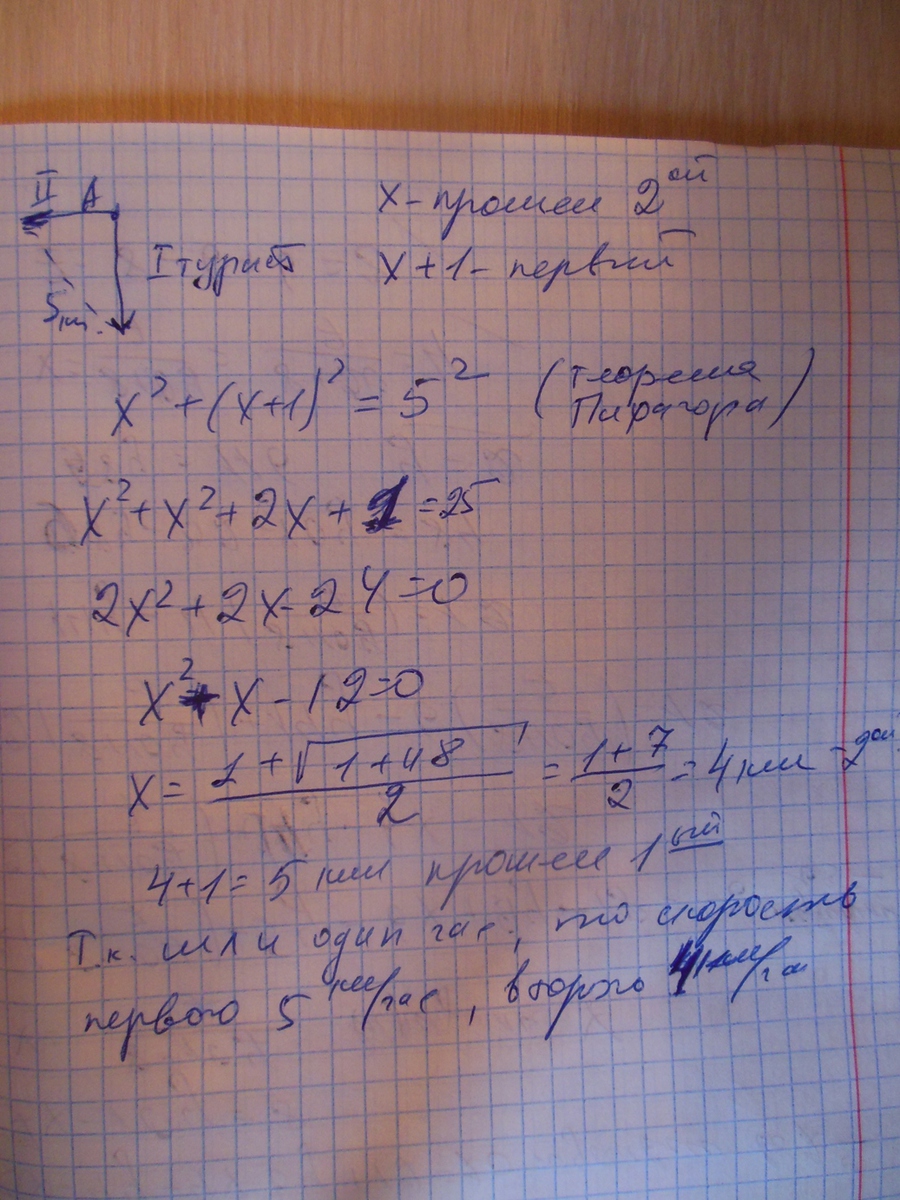 II A
x - прошел 2ой
I турист
x + 1 - первый
5 км.
x² + (x+1)² = 5² (теорема Пифагора)
x² + x² + 2x + 1 = 25
2x² + 2x - 24 = 0
x² + x - 12 = 0
x = \frac{1 + \sqrt{1+48}}{2} = \frac{1+7}{2} = 4 км - 2ой
4+1 = 5 км прошел 1ый
Т.к. шли один час, то скорость
первого 5 км/час, второго 4 км/час